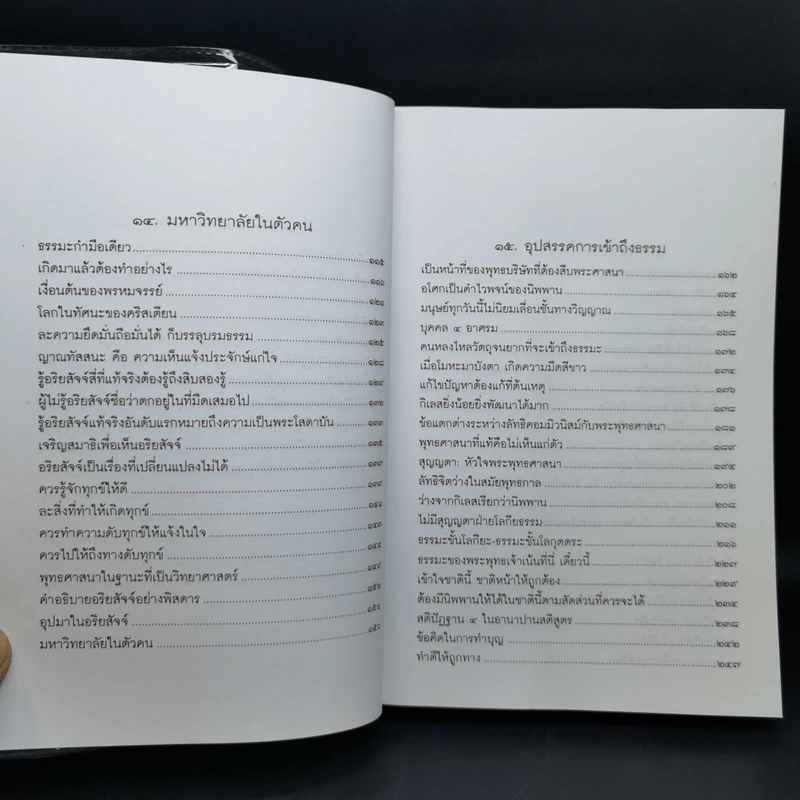 ๑๔. มหาวิทยาลัยในตัวคน
ธรรมะกำมือเดียว ๑๑๕
เกิดมาแล้วต้องทำอย่างไร ๑๑๖
เงื่อนต้นของพรหมจรรย์ ๑๒๑
โลกในทัศนะของคริสเตียน ๑๒๓
ละความยึดมั่นถือมั่นได้ ก็บรรลุบรมธรรม ๑๒๕
ญาณทัสสนะ คือ ความเห็นแจ้งประจักษ์แก่ใจ ๑๒๘
รู้อริยสัจจ์สี่ที่แท้จริงต้องรู้ถึงสิบสองรู้ ๑๒๙
ผู้ไม่รู้อริยสัจจ์ชื่อว่าตกอยู่ในที่มืดเสมอไป ๑๓๒
รู้อริยสัจจ์แท้จริงอันดับแรกหมายถึงความเป็นพระโสดาบัน ๑๓๓
เจริญสมาธิเพื่อเห็นอริยสัจจ์ ๑๓๕
อริยสัจจ์เป็นเรื่องที่เปลี่ยนแปลงไม่ได้ ๑๓๙
ควรรู้จักทุกข์ให้ดี ๑๓๙
ละสิ่งที่ทำให้เกิดทุกข์ ๑๔๑
ควรทำความดับทุกข์ให้แจ้งในใจ ๑๔๓
ควรไปให้ถึงทางดับทุกข์ ๑๔๔
พุทธศาสนาในฐานะที่เป็นวิทยาศาสตร์ ๑๔๙
คำอธิบายอริยสัจจ์อย่างพิสดาร ๑๕๒
อุปมาในอริยสัจจ์ ๑๕๔
มหาวิทยาลัยในตัวคน ๑๕๖
๑๕. อุปสรรคการเข้าถึงธรรม
เป็นหน้าที่ของพุทธบริษัทที่ต้องสืบพระศาสนา ๑๖๒
อโศกเป็นคำไวพจน์ของนิพพาน ๑๖๔
มนุษย์ทุกวันนี้ไม่นิยมเลื่อนชั้นทางวิญญาณ ๑๖๕
บุคคล ๔ อาศรม ๑๖๘
คนหลงไหลวัตถุจนยากที่จะเข้าถึงธรรมะ ๑๗๒
เมื่อโมหะมาบังตา เกิดความมืดสีขาว ๑๗๔
แก้ไขปัญหาต้องแก้ที่ต้นเหตุ ๑๗๖
กิเลสยิ่งน้อยยิ่งพัฒนาได้มาก ๑๗๘
ข้อแตกต่างระหว่างลัทธิคอมมิวนิสม์กับพระพุทธศาสนา ๑๘๑
พุทธศาสนาที่แท้คือไม่เห็นแก่ตัว ๑๘๙
สุญญตา: หัวใจพระพุทธศาสนา ๑๙๔
ลัทธิจิตว่างในสมัยพุทธกาล ๒๐๒
ว่างจากกิเลสเรียกว่านิพพาน ๒๐๘
ไม่มีสุญญตาฝ่ายโลกียธรรม ๒๑๑
ธรรมะชั้นโลกียะ-ธรรมะชั้นโลกุตตระ ๒๑๖
ธรรมะของพระพุทธเจ้าเน้นที่นี่ เดี๋ยวนี้ ๒๒๗
เข้าใจชาตินี้ ชาติหน้าให้ถูกต้อง ๒๒๙
ต้องมีนิพพานให้ได้ในชาตินี้ตามสัดส่วนที่ควรจะได้ ๒๓๔
สติปัฏฐาน ๔ ในอานาปานสติสูตร ๒๓๘
ข้อคิดในการทำบุญ ๒๔๒
ทำดีให้ถูกทาง ๒๔๗